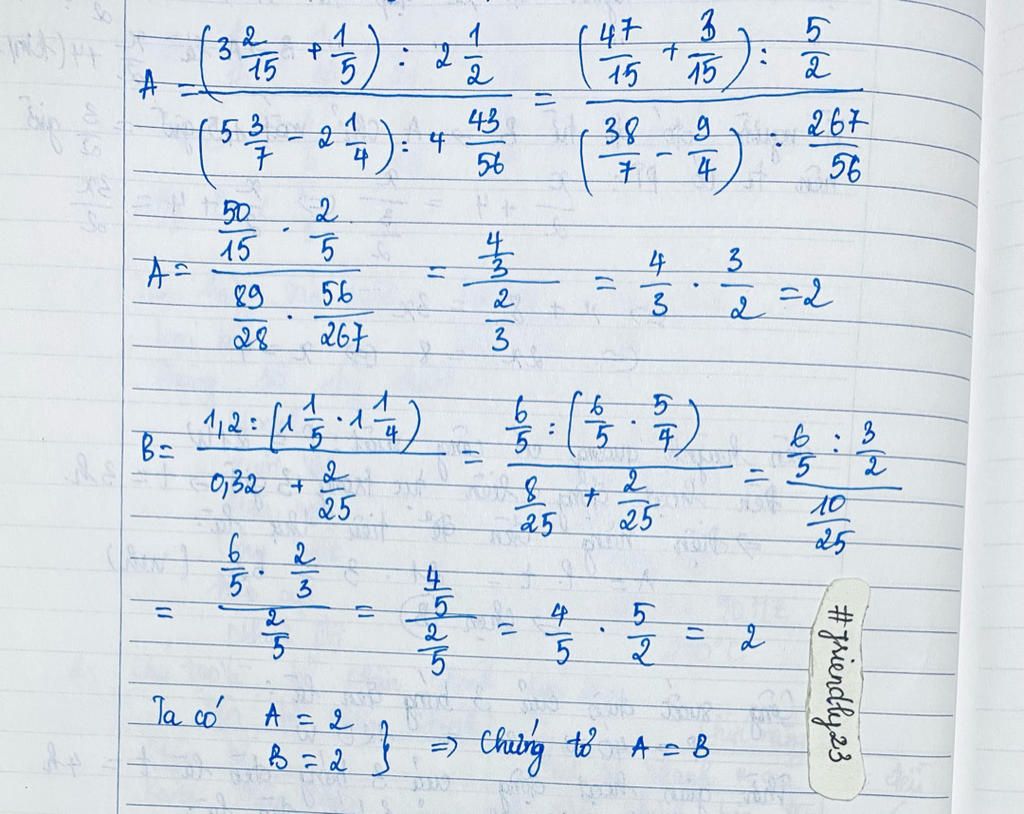 A = ((3 2/15 + 1/5) : 2 1/2) / ((5 3/7 - 2 1/4) : 4 43/56) = ((47/15 + 3/15) : 5/2) / ((38/7 - 9/4) : 267/56)
A = (50/15 . 2/5) / (89/28 . 56/267) = (4/3) / (2/3) = 4/3 . 3/2 = 2
B = (1,2 : (1 1/5 . 1 1/4)) / (0,32 + 2/25) = (6/5 : (6/5 . 5/4)) / (8/25 + 2/25) = (6/5 : 3/2) / (10/25)
= (6/5 . 2/3) / (2/5) = (4/5) / (2/5) = 4/5 . 5/2 = 2
Ta có A = 2
B = 2 } => Chứng tỏ A = B
#friendly23